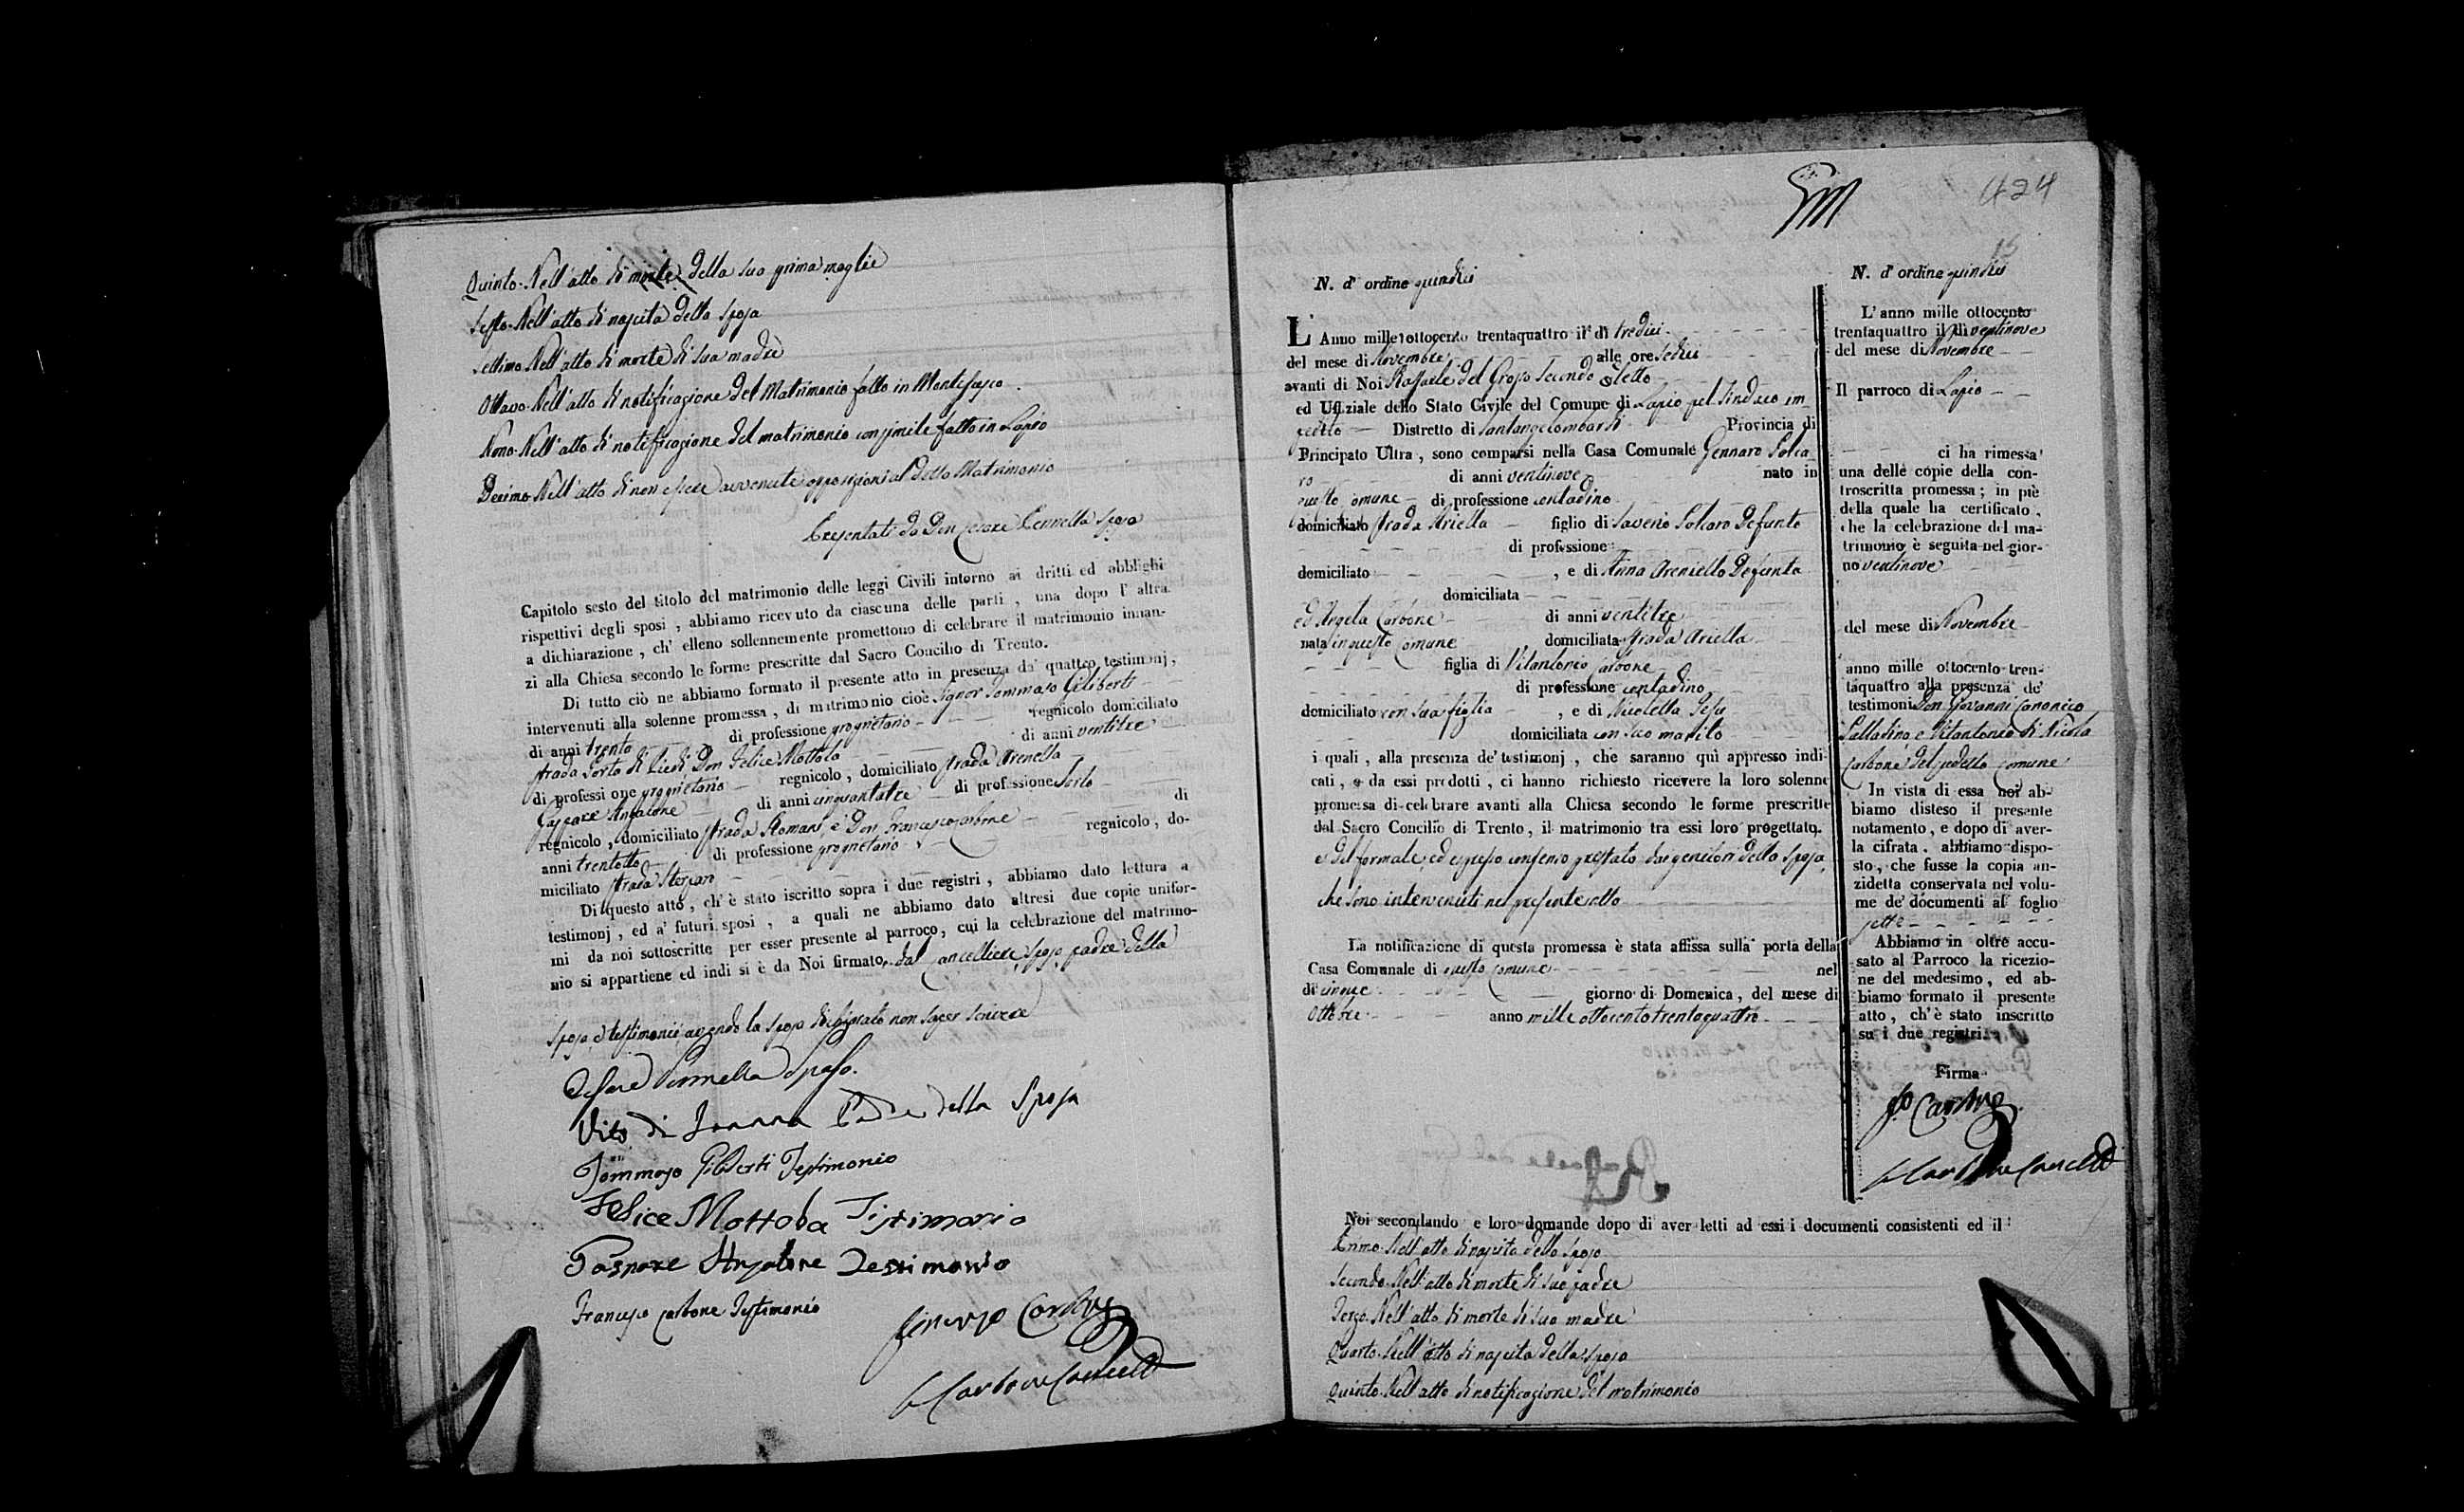 Quinto. Nell'atto di morte della sua prima moglie
Sesto. Nell'atto di nascita della sposa
Settimo. Nell'atto di morte di sua madre
Ottavo. Nell'atto di notificazione del Matrimonio fatto in Montefusco
Nono. Nell'atto di notificazione del matrimonio consimile fatto in Lapio
Decimo. Nell'atto di non essere avvenute opposizioni al detto Matrimonio
Presentati da Don Cesare sposo
Capitolo sesto del titolo del matrimonio delle leggi Civili intorno ai dritti ed obblighi
rispettivi degli sposi, abbiamo ricevuto da ciascuna delle parti, una dopo l'altra
a dichiarazione, ch'elleno sollennemente promettono di celebrare il matrimonio innan-
zi alla Chiesa secondo le forme prescritte dal Sacro Concilio di Trento.
Di tutto ciò ne abbiamo formato il presente atto in presenza da' quattro testimonj,
intervenuti alla solenne promessa, di matrimonio cioè Signor Tommaso Giliberti
di anni trenta di professione proprietario regnicolo domiciliato
strada Porta di Don Felice Mottola di anni ventitre
di professione proprietario regnicolo, domiciliato strada Arenella
Gaspare di anni cinquantatre di professione Sarto
regnicolo, domiciliato strada Romani, e Don Francesco Carbone di
anni trentotto di professione proprietario regnicolo, do-
miciliato strada
Di questo atto, ch'è stato iscritto sopra i due registri, abbiamo dato lettura a
testimonj, ed a' futuri sposi, a quali ne abbiamo dato altresi due copie unifor-
mi da noi sottoscritte per esser presente al parroco, cui la celebrazione del matrimo-
nio si appartiene ed indi si è da Noi firmato, dal Cancelliere, sposo padre della
sposa, e testimonii avendo la sposa dichiarato non saper scrivere
Cesare sposo.
Vito di Padre della Sposa
Tommaso Giliberti Testimonio
Felice Mottola Testimonio
Gaspare Testimonio
Francesco Carbone Testimonio
Carbone
Carbone Cancell
424
15
N. d'ordine quindici
L'Anno mille ottocento trentaquattro il dì tredici
del mese di Novembre alle ore sedici
avanti di Noi Raffaele del Grosso Secondo Eletto
ed Uffiziale dello Stato Civile del Comune di Lapio pel Sindaco im-
pedito Distretto di Santangelombardi Provincia di
Principato Ultra, sono comparsi nella Casa Comunale Gennaro Solca-
ro di anni ventinove nato in
questo Comune di professione contadino
domiciliato strada Ariella figlio di Saverio Solcaro Defunto
di professione
domiciliato , e di Anna Areniello Defunta
domiciliata
ed Angela Carbone di anni ventitre
nata in questo Comune domiciliata strada Ariella
figlia di Vitantonio Carbone
di professione contadino
domiciliato con sua figlia , e di Nicoletta
domiciliata con suo marito
i quali, alla presenza de' testimonj, che saranno quì appresso indi-
cati, e da essi prodotti, ci hanno richiesto ricevere la loro solenne
promessa di celebrare avanti alla Chiesa secondo le forme prescritte
dal Sacro Concilio di Trento, il matrimonio tra essi loro progettato.
e del formale, ed espresso consenso prestato dai genitori della sposa,
che sono intervenuti nel presente atto
La notificazione di questa promessa è stata affissa sulla porta della
Casa Comunale di questo Comune nel
dì cinque giorno di Domenica, del mese di
Ottobre anno mille ottocento trentaquattro
Noi secondando e loro domande dopo di aver letti ad essi i documenti consistenti ed il
Primo. Nell'atto di nascita dello sposo
Secondo. Nell'atto di morte di suo padre
Terzo. Nell'atto di morte di sua madre
Quarto. Nell'atto di nascita della sposa
Quinto. Nell'atto di notificazione del matrimonio
N. d'ordine quindici
L'anno mille ottocento
trentaquattro il dì ventinove
del mese di Novembre
Il parroco di Lapio
ci ha rimessa
una delle copie della con-
troscritta promessa; in piè
della quale ha certificato,
che la celebrazione del ma-
trimonio è seguita nel gior-
no ventinove
del mese di Novembre
anno mille ottocento tren-
taquattro alla presenza de'
testimoni Don Giovanni Canonico
Palladino e Vitantonio di Nicola
Carbone del sudetto Comune
In vista di essa noi ab-
biamo disteso il presente
notamento, e dopo di aver-
la cifrata, abbiamo dispo-
sto, che fusse la copia an-
zidetta conservata nel volu-
me de' documenti al foglio
sette
Abbiamo in oltre accu-
sato al Parroco la ricezio-
ne del medesimo, ed ab-
biamo formato il presente
atto, ch'è stato inscritto
su i due registri.
Firma
Carbone Cancell